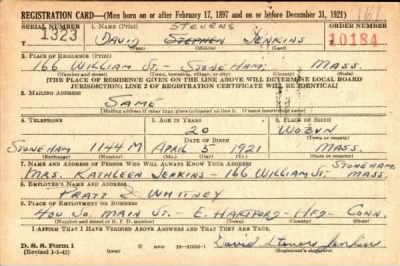 REGISTRATION CARD—(Men born on or after February 17, 1897 and on or before December 31, 1921)
SERIAL NUMBER 1. NAME (Print) STEVENS ORDER NUMBER
1323 (DAVID STEPHEN JENKINS 10184
(First) (Middle) (Last)
2. PLACE OF RESIDENCE (Print)
166 WILLIAM ST. - STONEHAM, MASS.
(Number and street) (Town, township, village, or city) (County) (State)
[THE PLACE OF RESIDENCE GIVEN ON THE LINE ABOVE WILL DETERMINE LOCAL BOARD
JURISDICTION; LINE 2 OF REGISTRATION CERTIFICATE WILL BE IDENTICAL]
3. MAILING ADDRESS
SAME
[Mailing address if other than place indicated on line 2. If same insert word same]
4. TELEPHONE 5. AGE IN YEARS 6. PLACE OF BIRTH
20 WOBURN
DATE OF BIRTH (Town or county)
STONEHAM 1144 M APRIL 5 1921 MASS.
(Exchange) (Number) (Mo.) (Day) (Yr.) (State or country)
7. NAME AND ADDRESS OF PERSON WHO WILL ALWAYS KNOW YOUR ADDRESS STONEHAM,
MRS. KATHLEEN JENKINS - 166 WILLIAM ST. - MASS.
8. EMPLOYER'S NAME AND ADDRESS
PRATT & WHITNEY
9. PLACE OF EMPLOYMENT OR BUSINESS
400 SO. MAIN ST. - E. HARTFORD - HFD - CONN.
(Number and street or R. F. D. number) (Town) (County) (State)
I AFFIRM THAT I HAVE VERIFIED ABOVE ANSWERS AND THAT THEY ARE TRUE.
D. S. S. Form 1
(Revised 1-1-42) (over) David Stevens Jenkins
(Registrant's signature)